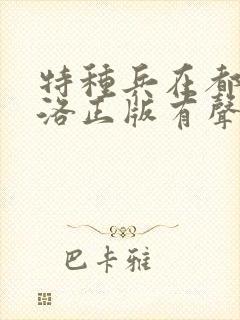 特種兵在都
洛正版有聲
巴卡雅